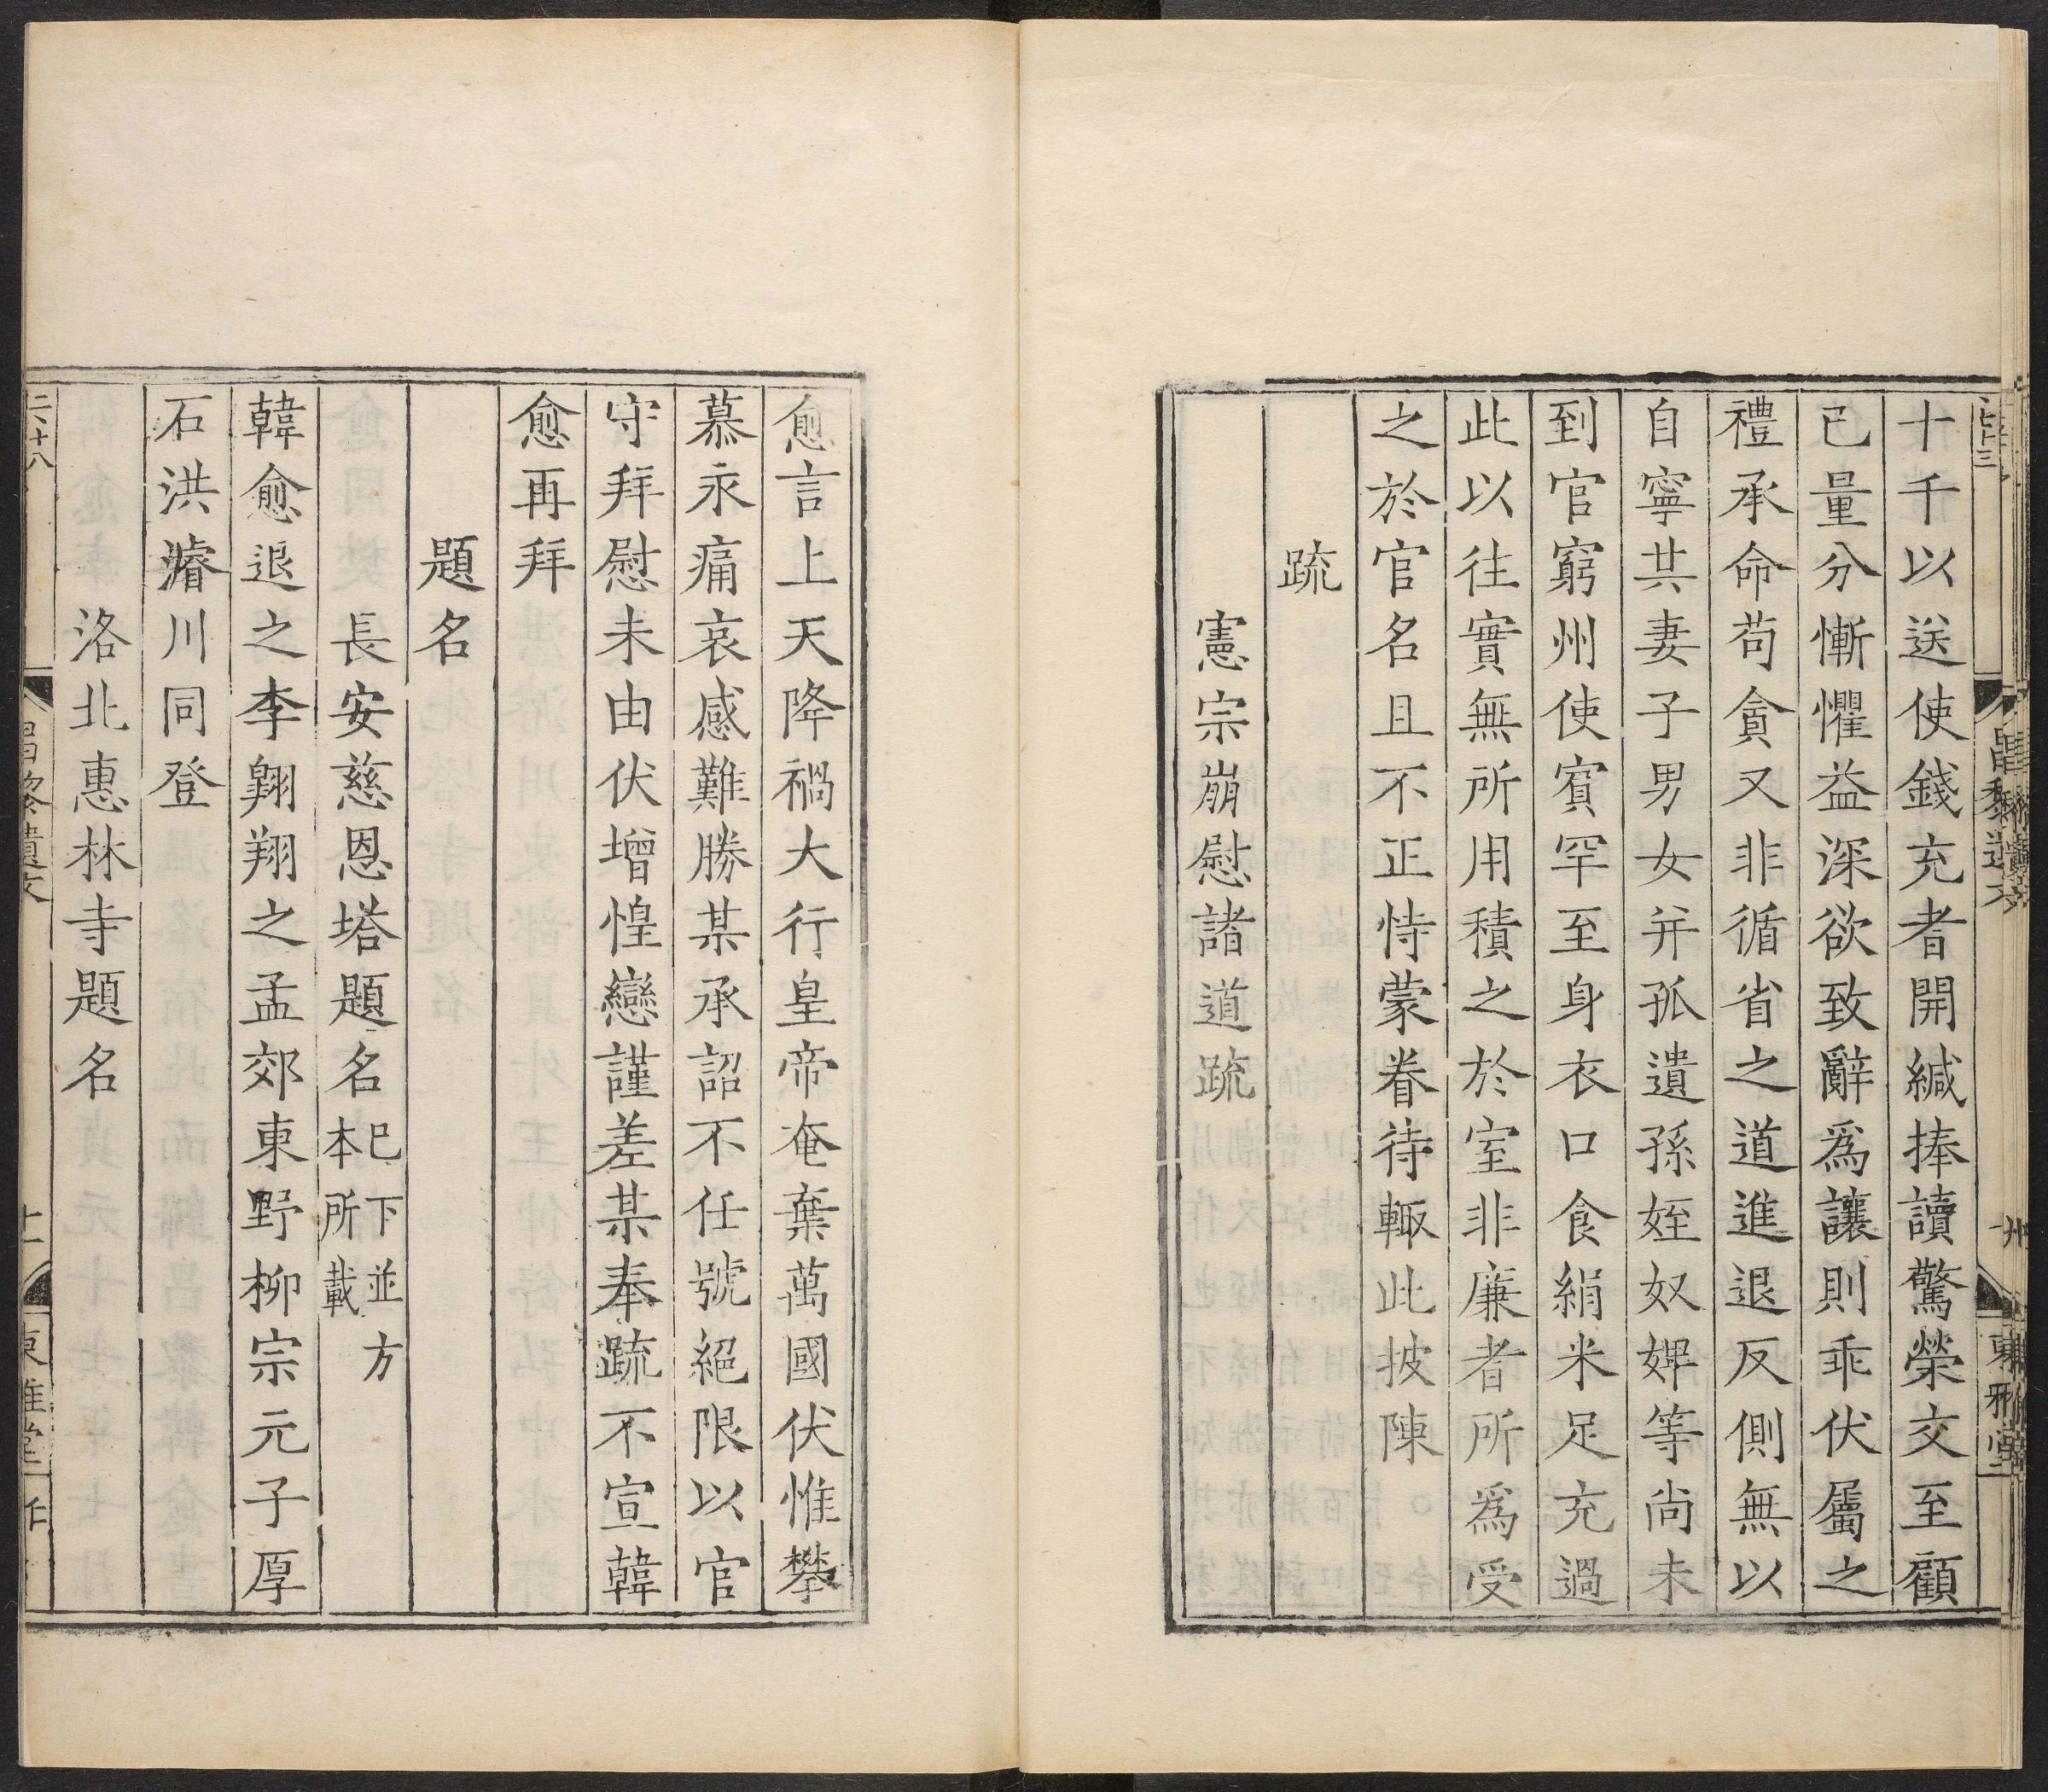 十千以送使錢充者開緘捧讀驚榮交至顧
已量分慚懼益深欲致辭爲讓則乖伏屬之
禮承命苟貪又非循省之道進退反側無以
自寧其妻子男女并孤遺孫姪奴婢等尚未
到官窮州使賓罕至身衣口食絹米足充過
此以往實無所用積之於室非廉者所爲受
之於官名且不正恃蒙眷待輙此披陳
疏
憲宗崩慰諸道疏
愈言上天降禍大行皇帝奄棄萬國伏惟攀
慕永痛哀感難勝某承詔不任號絕限以官
守拜慰未由伏增惶戀謹差某奉疏不宣韓
愈再拜
題名
長安慈恩塔題名巳下並方本所載
韓愈退之李翺翔之孟郊東野柳宗元子厚
石洪濬川同登
洛北惠林寺題名
昌黎遺文
十一
東雅堂